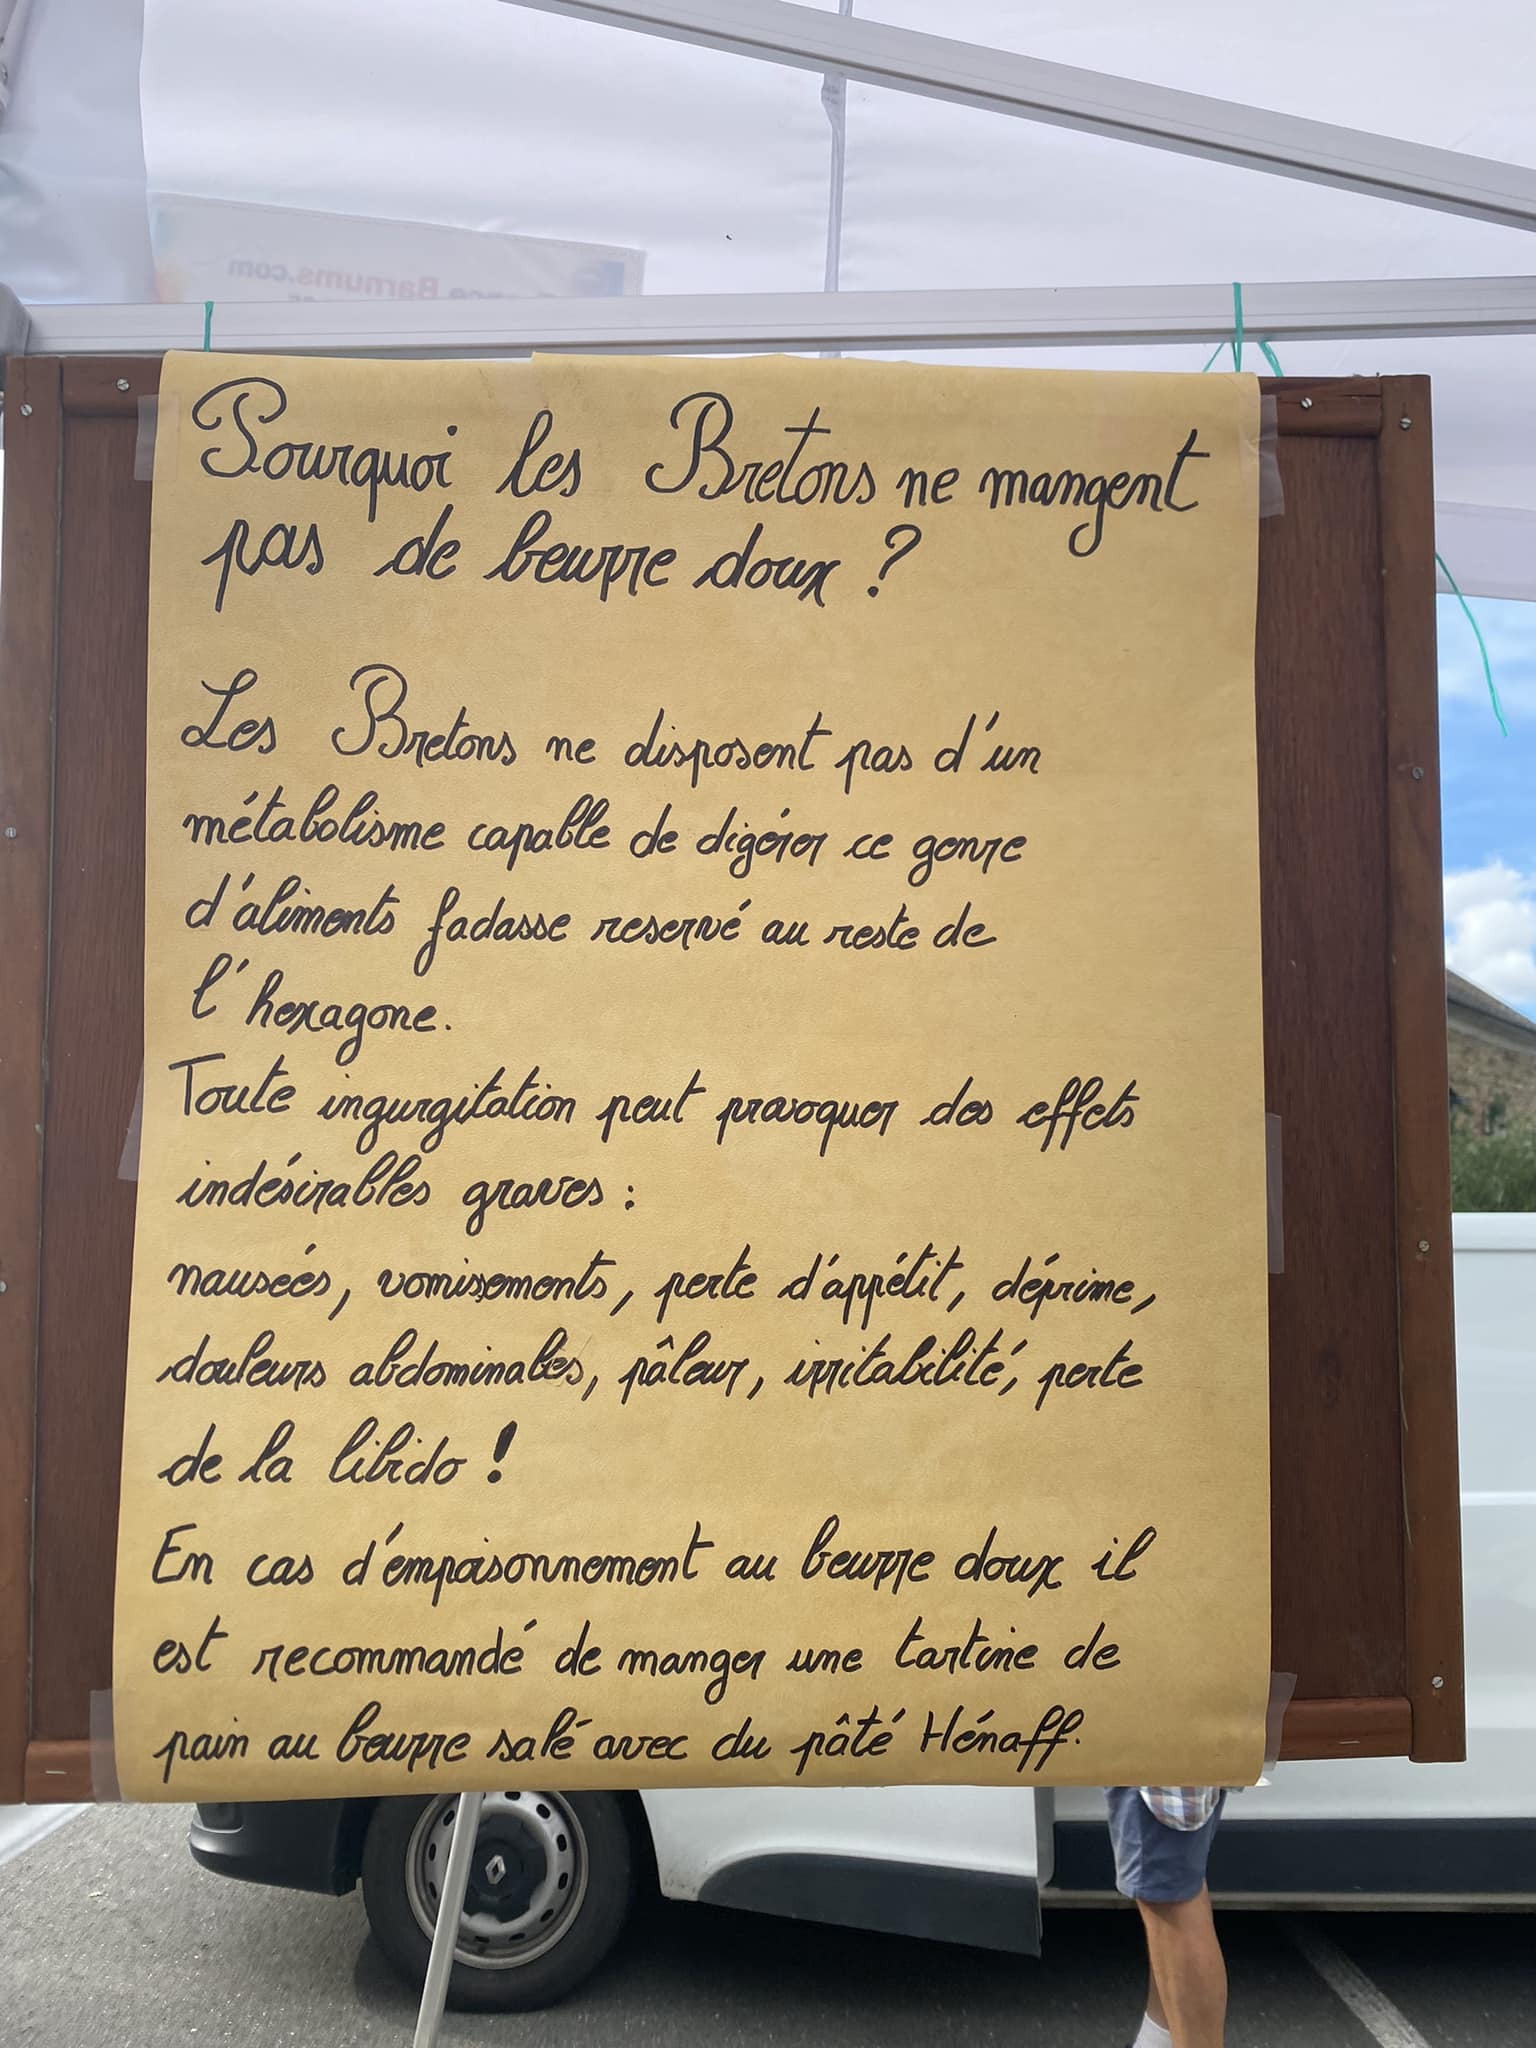 Barnums.com
Pourquoi les Bretons ne mangent
pas de beurre doux ?
Les Bretons ne disposent pas d'un
métabolisme capable de digérer ce genre
d'aliments fadasse reservé au reste de
l'hexagone.
Toute ingurgitation peut provoquer des effets
indésirables graves :
nauseés, vomissements, perte d'appétit, déprime,
douleurs abdominales, pâleur, irritabilité, perte
de la libido !
En cas d'empoisonnement au beurre doux il
est recommandé de manger une tartine de
pain au beurre salé avec du pâté Hénaff.